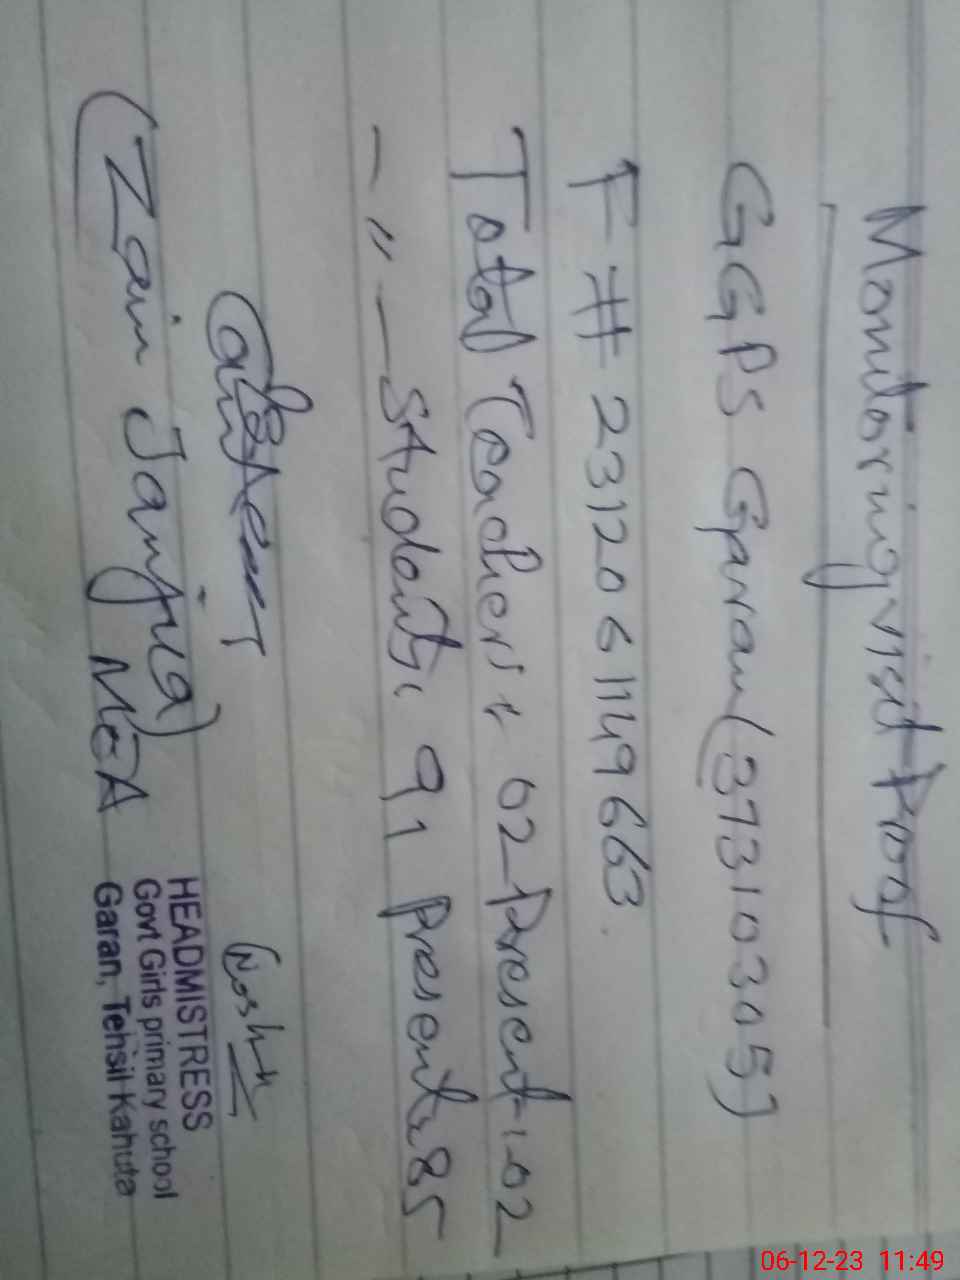 Monitoring visit Proof
GGPS Garan (37310305)
F # 231206 1149663.
Total Teachers: 02 Present: 02
– " – Students: 91 Present: 85
(Zain Janjua)
MEA
HEADMISTRESS
Govt Girls primary school
Garan, Tehsil Kahuta
06-12-23 11:49